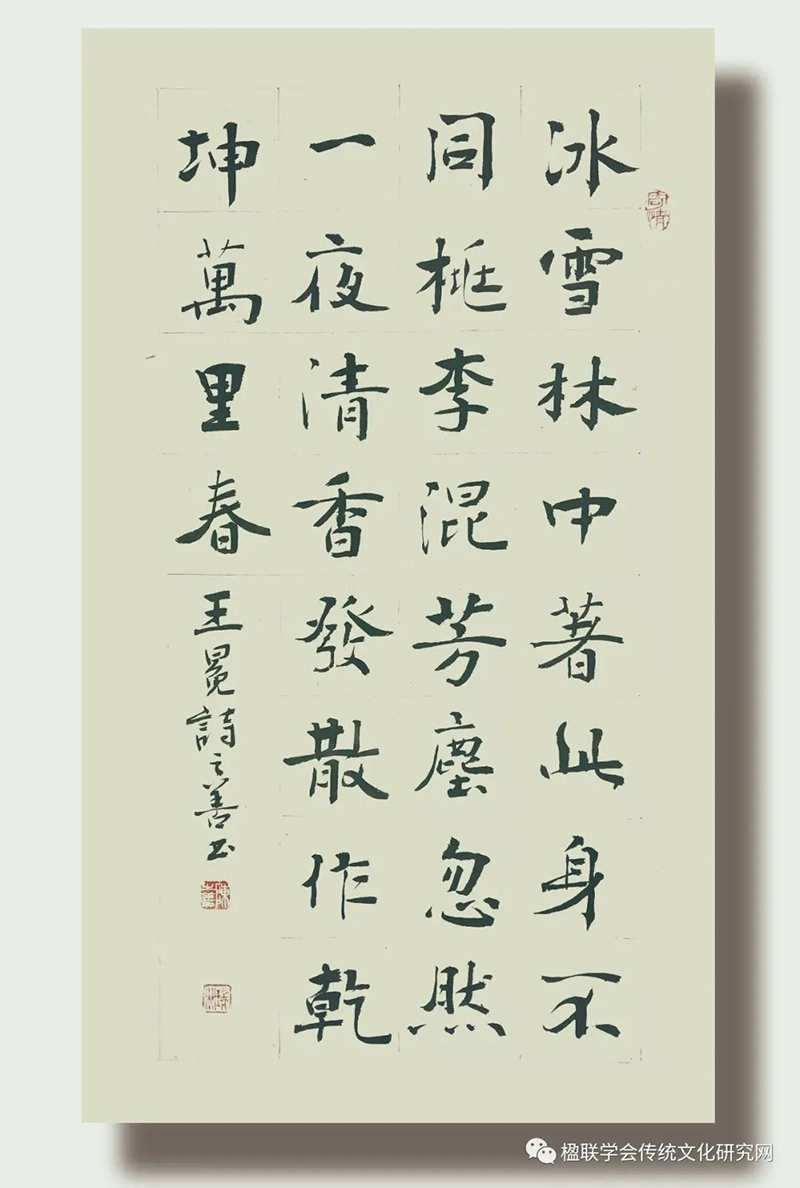 冰雪林中著此身不
同桃李混芳塵忽然
一夜清香發散作乾
坤萬里春
王冕詩之善书
楹联学会传统文化研究网